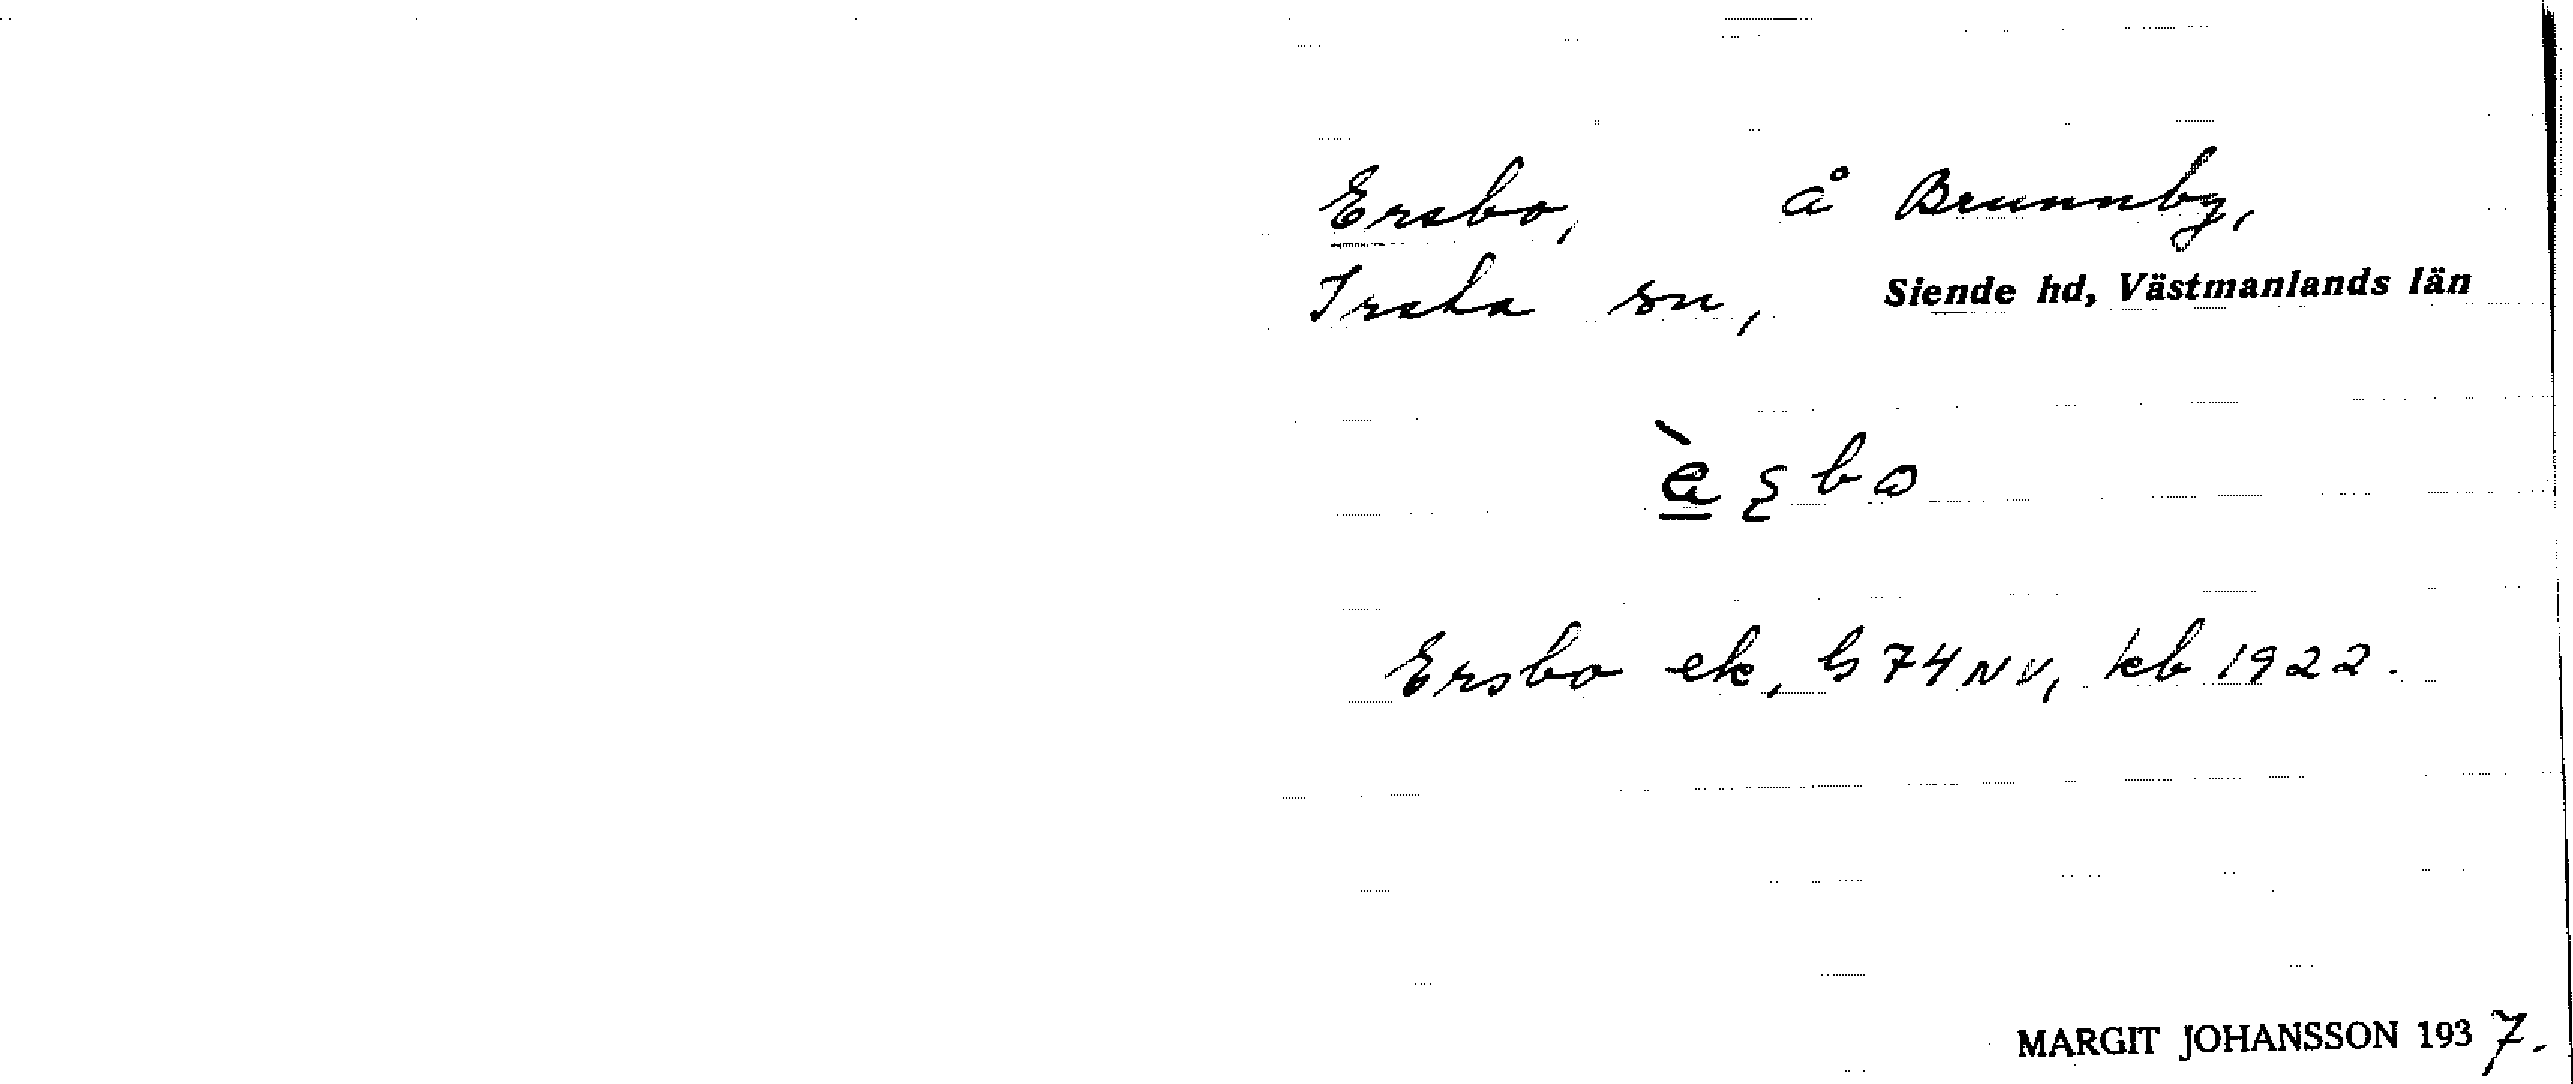 Ersbo, å Brunnby,
Irsta sn, Siende hd, Västmanlands län
Ersbo ek, b 74 NV, kb 1922.
MARGIT JOHANSSON 1937.